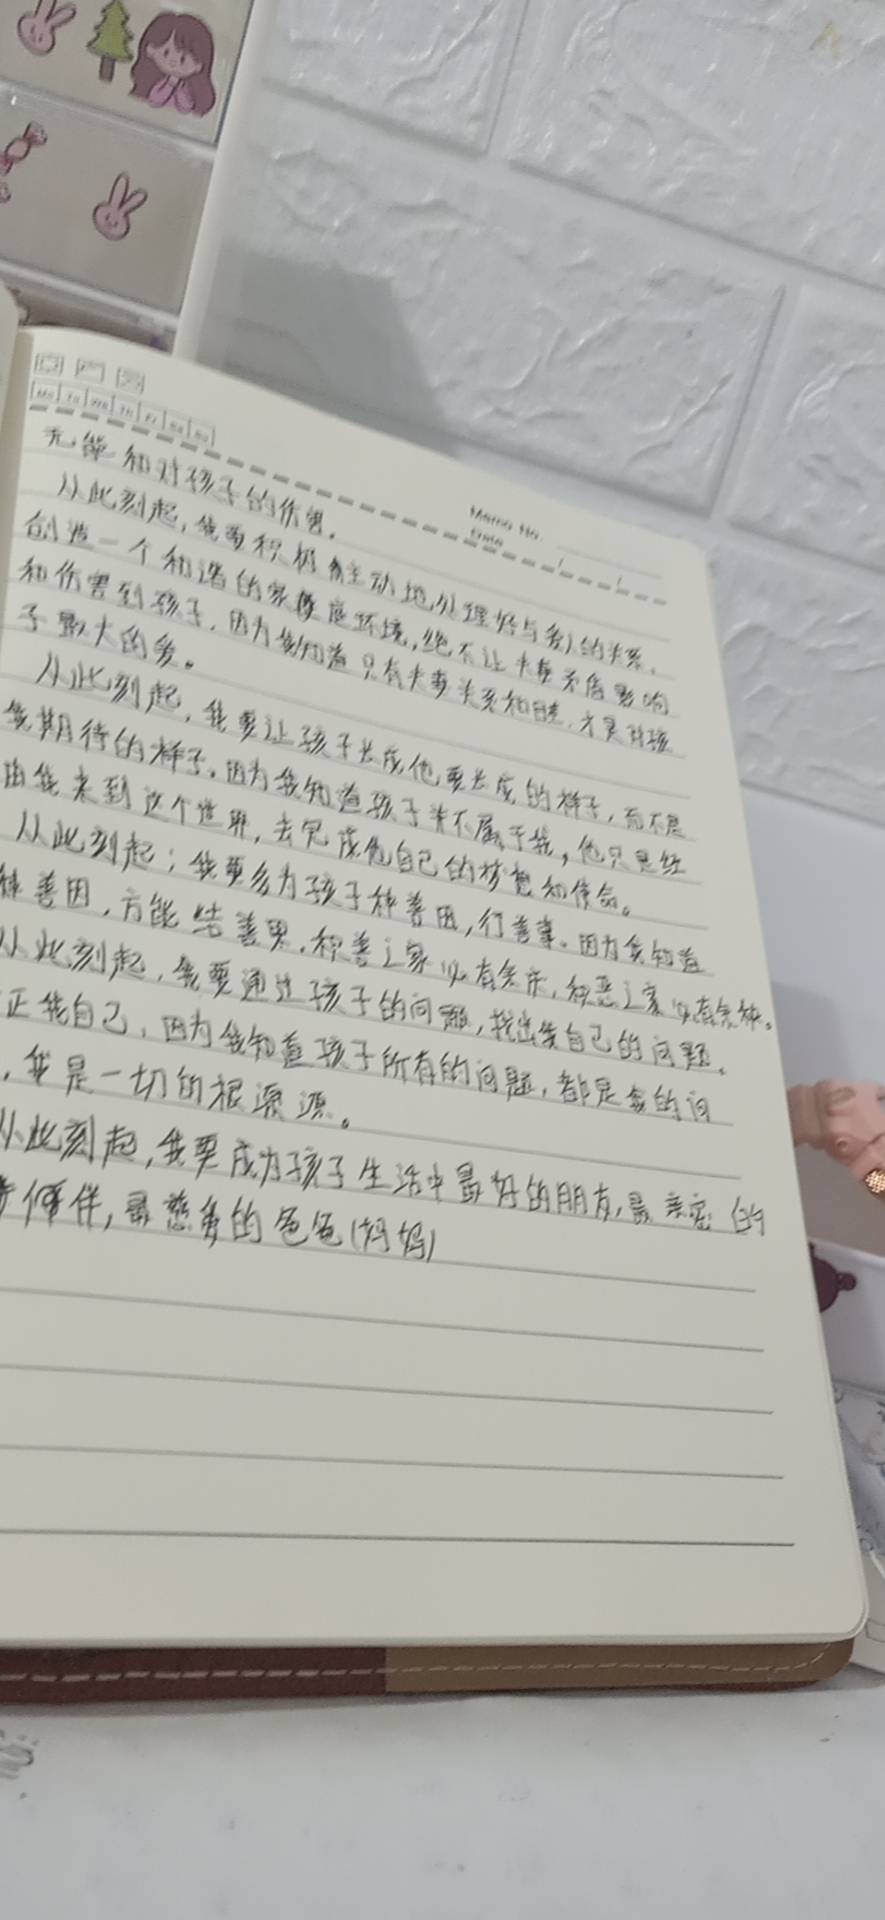 Mo Tu We Th Fr Sa Su
Memo No.
Date / /
无能和对孩子的伤害.
从此刻起,我要积极主动地处理好与爱人的关系,
创造一个和谐的家庭环境,绝不让夫妻矛盾影响
和伤害到孩子.因为我知道只有夫妻关系和睦.才是对孩
子最大的爱。
从此刻起,我要让孩子长成他要长成的样子,而不是
我期待的样子。因为我知道孩子并不属于我,他只是经
由我来到这个世界,去完成他自己的梦想和使命。
从此刻起;我要多为孩子种善因,行善事。因为我知道
种善因,方能结善果.积善之家必有余庆,积恶之家必有余殃。
从此刻起,我要通过孩子的问题,找出我自己的问题.
正我自己,因为我知道孩子所有的问题,都是我的问
,我是一切的根源源。
从此刻起,我要成为孩子生活中最好的朋友,最亲密的
伴,最慈爱的爸爸(妈妈)